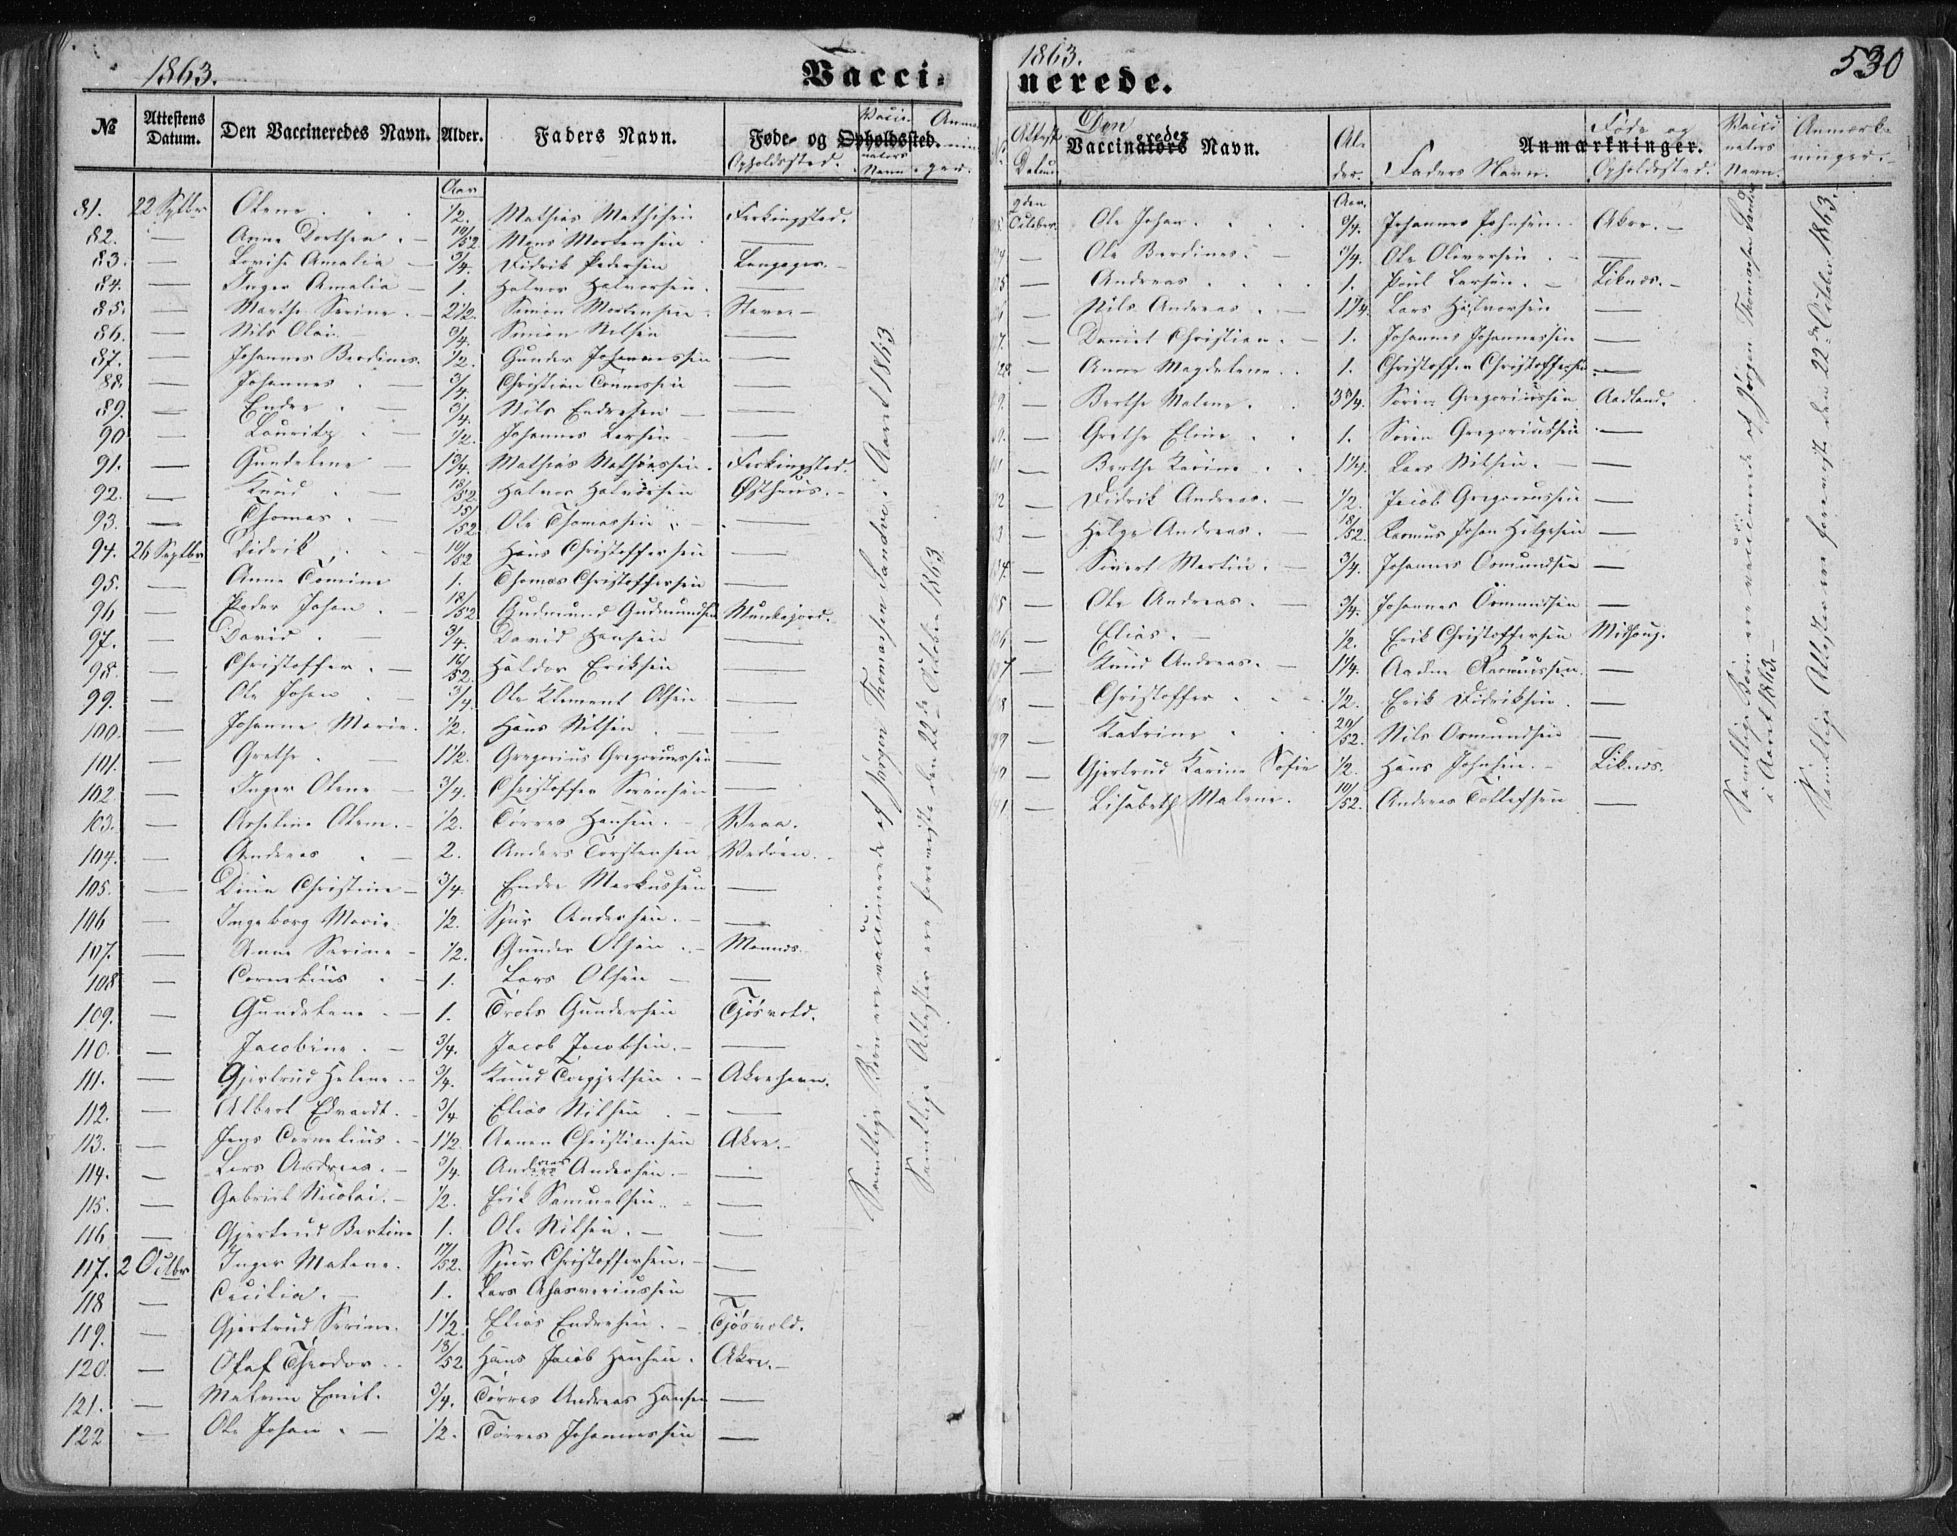 1863.
Vacci-
№ Attestens Datum. Den Vaccineredes Navn. Alder. Faders Navn. Føde- og Opholdssted.
Opholdssted.
Aar
81. 22 Septbr Olene 1/2. Mathias Mathisen Ferkingstad.
82. — Anne Dorthea. — 10/52 Mons Mortensen —
83. — Lovise Amalia — 3/4. Didrik Pedersen Langager. —
84. — Inger Amalia — 1. Halvor Halvorsen. —
85. — Marthe Serine. — 2 1/2. Simon Mortensen. Stave —
86. — Nils Olai 3/4. Simon Nilsen —
87. — Johannes Berdines. 1/2. Gunder Johannessen —
88. — Johannes. — 3/4. Christian Tønnessen —
89. — Endre. — 3/4. Nils Endresen — —
90 — Lauritz. — 1/2. Johannes Larsen —
91. — Gundelene — 1 3/4. Mathias Mathiassen. Ferkingstad.
92. — Knud. — 18/52 Halvor Halvorsen Østhuus. —
93. — Thomas. — 15/52. Ole Thomassen —
94. 26 Septbr Didrik 10/52 Hans Christoffersen —
95. — Anne Tomine 1. Thomas Christoffersen —
96 — Peder Johan. — 18/52 Gudmund Gudmundsen Munkejord.
97. — David. — 3/4. David Hansen —
98. — Christoffer. — 16/52. Haldor Eriksen —
99. — Ole Johan. — 3/4. Ole Klement Olsen —
100. — Johanne Marie. 1/2. Hans Nilsen —
101. — Grethe. — 1 1/2. Gregorius Gregoriussen —
102 — Inger Olene — 3/4. Christoffer Sørensen —
103. — Aseline Olene. — 1/2. Tørres Hansen. — Vraa.
104. — Andreas — 2. Anders Torstensen Vedøen.
105. — Dina Christine — 3/4. Endre Markussen —
106 — Ingeborg Marie. 1/2. Sjur Andersen. — —
107. — Anne Serine — 1/2. Gunder Olsen. — Mannes.
108 — Cornelius. — 1. Lars Olsen — —
109. — Gundelene. — 1. Trols Gundersen Tjøsvold.
110. — Jacobine. — 3/4. Jacob Jacobsen. — —
111. — Gjertrud Helene. — 3/4. Knud Torgjelsen. — Akrehavn.
112. — Albert Edvardt. 3/4 Elias Nilsen. — —
113. — Jens Cornelius. — 1 1/2. Aanen Christiansen Akre. —
114. — Lars Andreas. — 3/4. Andreas Andersen. — —
115. — Gabriel Nicolai. — 1/2. Erik Samuelsen. — —
116 — Gjertrud Bertine 1. Ole Nilsen. — —
117. 2 Octbr Inger Malene. 17/52. Sjur Christoffersen. — —
118 — Cecilia. — 1. Lars Ahasveriussen —
119. — Gjertrud Serine. 1 1/2. Elias Endresen. — Tjøsvold.
120. — Olaf Theodor. 18/52 Hans Jacob Hansen. Akre. —
121. — Malene Emil. 3/4. Tørres Andreas Hansen —
122 — Ole Johan. — 1/2. Tørres Johannessen —
Samtlige Børn ere vaccinerede af Jørgen Thomassen Sandve i Aaret 1863
Samtlige Attester ere foreviste den 22de October 1863
1863.
530
nerede.
Attest Datum Den Vaccineredes Navn. Alder. Faders Navn. Anmærkninger. Føde og Opholdssted. Vaccinators Navn. Anmærkninger. —
Aar.
2den October Ole Johan. 3/4. Johannes Johnsen. Akre. —
— Ole Berdines. — 3/4. Ole Oliversen. — —
— Andreas 1. Poul Larsen. — Liknes. —
— Nils Andreas. 1 1/4. Lars Halvorsen —
— Daniel Christian. — 1. Johannes Johannessen —
— Anne Magdelene. 1. Christoffer Christoffersen —
— Berthe Malene. 3 3/4. Søren Gregoriussen Aadland.
— Grethe Eline 1. Søren Gregoriussen —
— Berthe Karine 1 1/4. Lars Nilsen. — —
— Didrik Andreas. — 1/2. Jacob Gregoriussen —
— Helge Andreas. — 18/52. Rasmus Johan Helgesen —
— Sivert Martin. — 3/4. Johannes Osmundsen —
— Ole Andreas. — 3/4. Johannes Osmundsen —
— Elias. — 1/2. Erik Christoffersen Midhaug.
— Knud Andreas. — 1 1/4. Aadne Rasmussen. —
— Christoffer 1/2. Erik Didriksen. —
— Katrine 20/52. Nils Osmundsen —
— Gjertrud Karine Sofie 1/2. Hans Johnsen. — Liknes.
— Lisabeth Malene. 10/52. Andreas Tollefsen —
Samtlige Børn ere vaccinerede af Jørgen Thomassen Sandve
i Aaret 1863. —
Samtlige Attester ere foreviste den 22de October 1863.